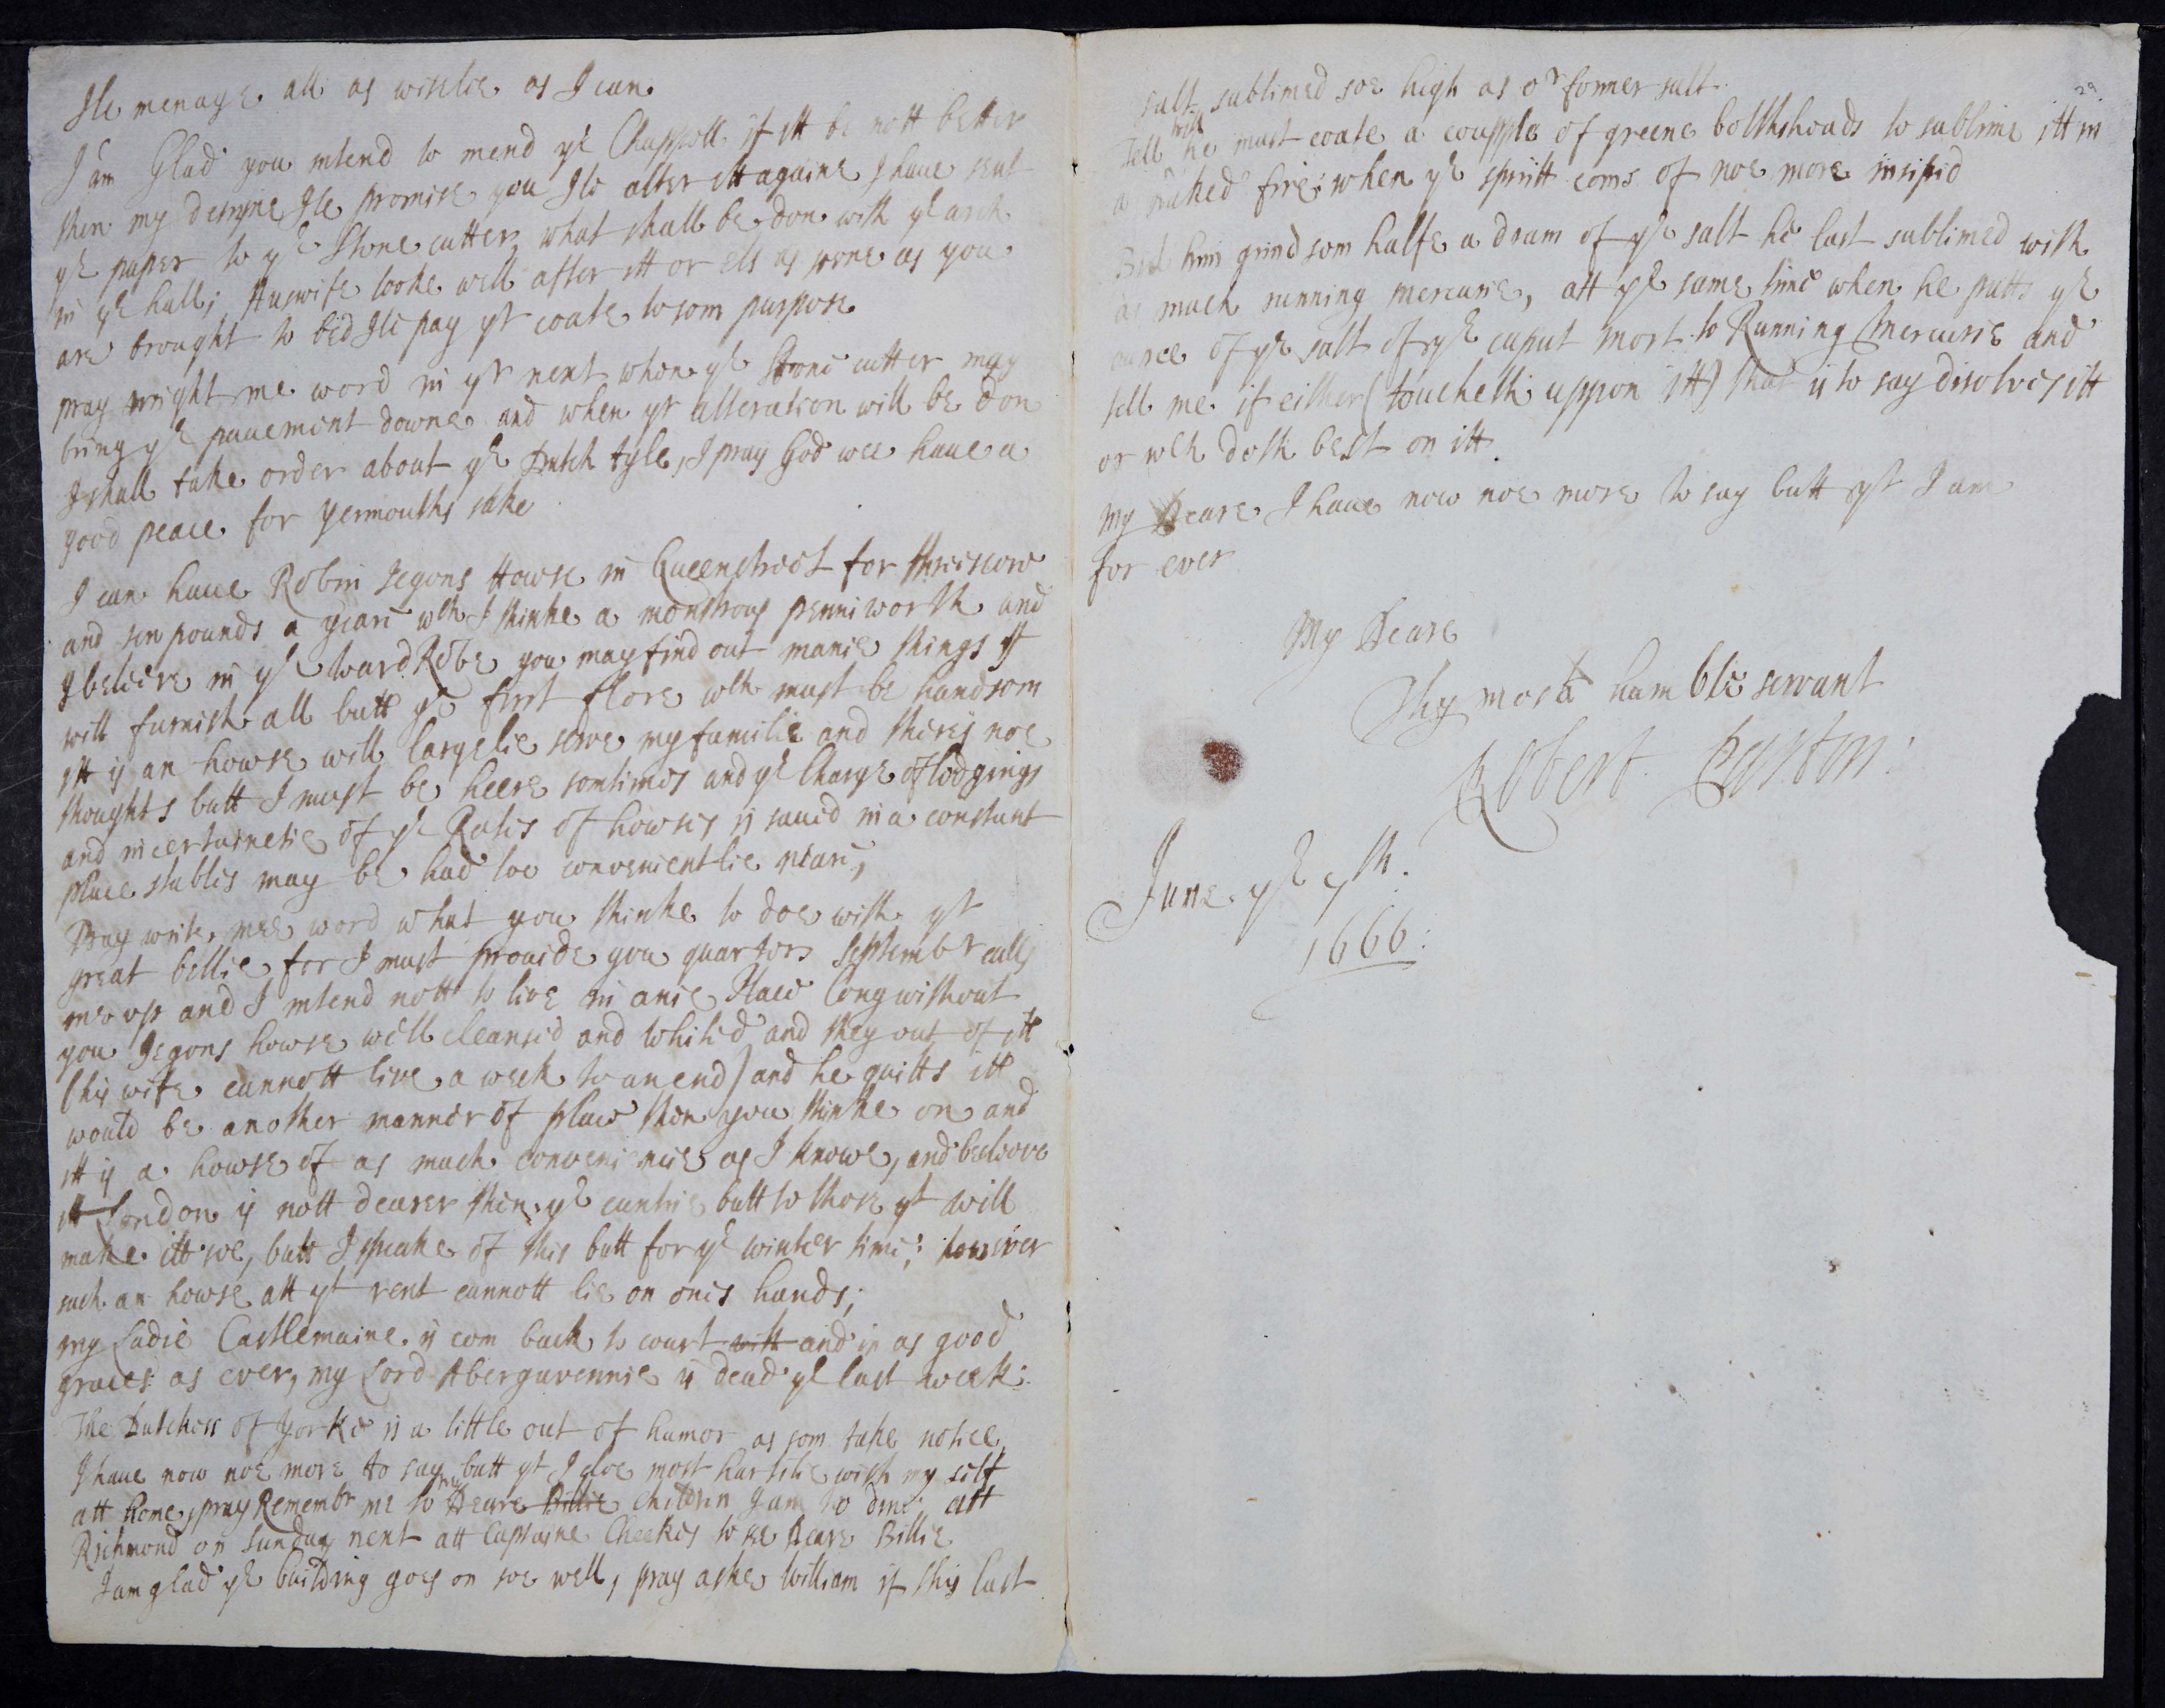 Ile menage all as wiselie as I can.
I am Glad you intend to mend ye Chappoll if itt be nott better
then my designe Ile promise you Ile alter itt againe I haue sent
ye paper to ye Stone cutter what shall be don with ye arch
in ye hall; Huswife looke well after itt or els as sone as you
are brought to bed Ile pay yr coate to som purpose
pray wright me word in yr next when ye Stone cutter may
bring ye pauement downe and when yt alteration will be don
I shall take order about ye Dutch tyle, I pray God wee haue a
good peace for Yermouths sake
I can haue Robin Jegons Howse in Queenstreet for threscore
and ten pounds a yeare wch I thinke a monstrous penniworth and
I beleive in ye WardRobe you may find out manie things yt
will furnish all butt ye first flore wch must be handsom
itt is an howse will largelie serve my familie and theres noe
thoughts butt I must be heere somtimes and ye Charge of lodgings
and incertainetie of ye Rates of howses is saued in a constant
place stables may be had too convenientlie neare,
Pray write mee word what you thinke to doe with yt
great bellie for I must prouide you quarters Septembr calls
me vp and I intend nott to live in anie Place long without
you Jegons howse well cleansed and whited and they out of itt
(his wife cannott live a week to an end) and he quitts itt
would be another manner of place then you thinke on and
itt is a howse of as much convenience as I knowe, and beleeve
itt London is nott dearer then ye cuntrie butt to those yt will
make itt soe, butt I speake of this butt for ye winter time; however
such an howse att yt rent cannott lie on ones hands;
my Ladie Castlemaine is com back to court with and in as good
graces as ever, my Lord Abergavennie is dead ye last week:
The Dutchess of Yorke is a little out of humor as som take notice
I haue now noe more to say butt yt I doe most hartilie wish my self
att home, pray Remembr me to my Deare Billie Children I am to dine att
Richmond on Sunday next att Captaine Cheekes to see Deare Billie
I am glad ye building goes on soe well, pray aske William if this last
29
salt sublimed soe high as or former salt.
Tell will he must coate a coupple of greene boltheads to sublime itt in
a naked fire; when ye spiritt coms of noe more insipid
Bid him grind som halfe a dram of ye salt he last sublimed with
as much running mercurie, att ye same time when he putts ye
ounce of ye salt of ye caput mort. to Running Mercurie and
tell me if either (toucheth uppon itt) that is to say disolves itt
or wch doth best on itt.
My Deare I haue now noe more to say butt yt I am
for ever
My Deare
Thy most humble servant
Robert Paston:
June ye 7th.
1666: